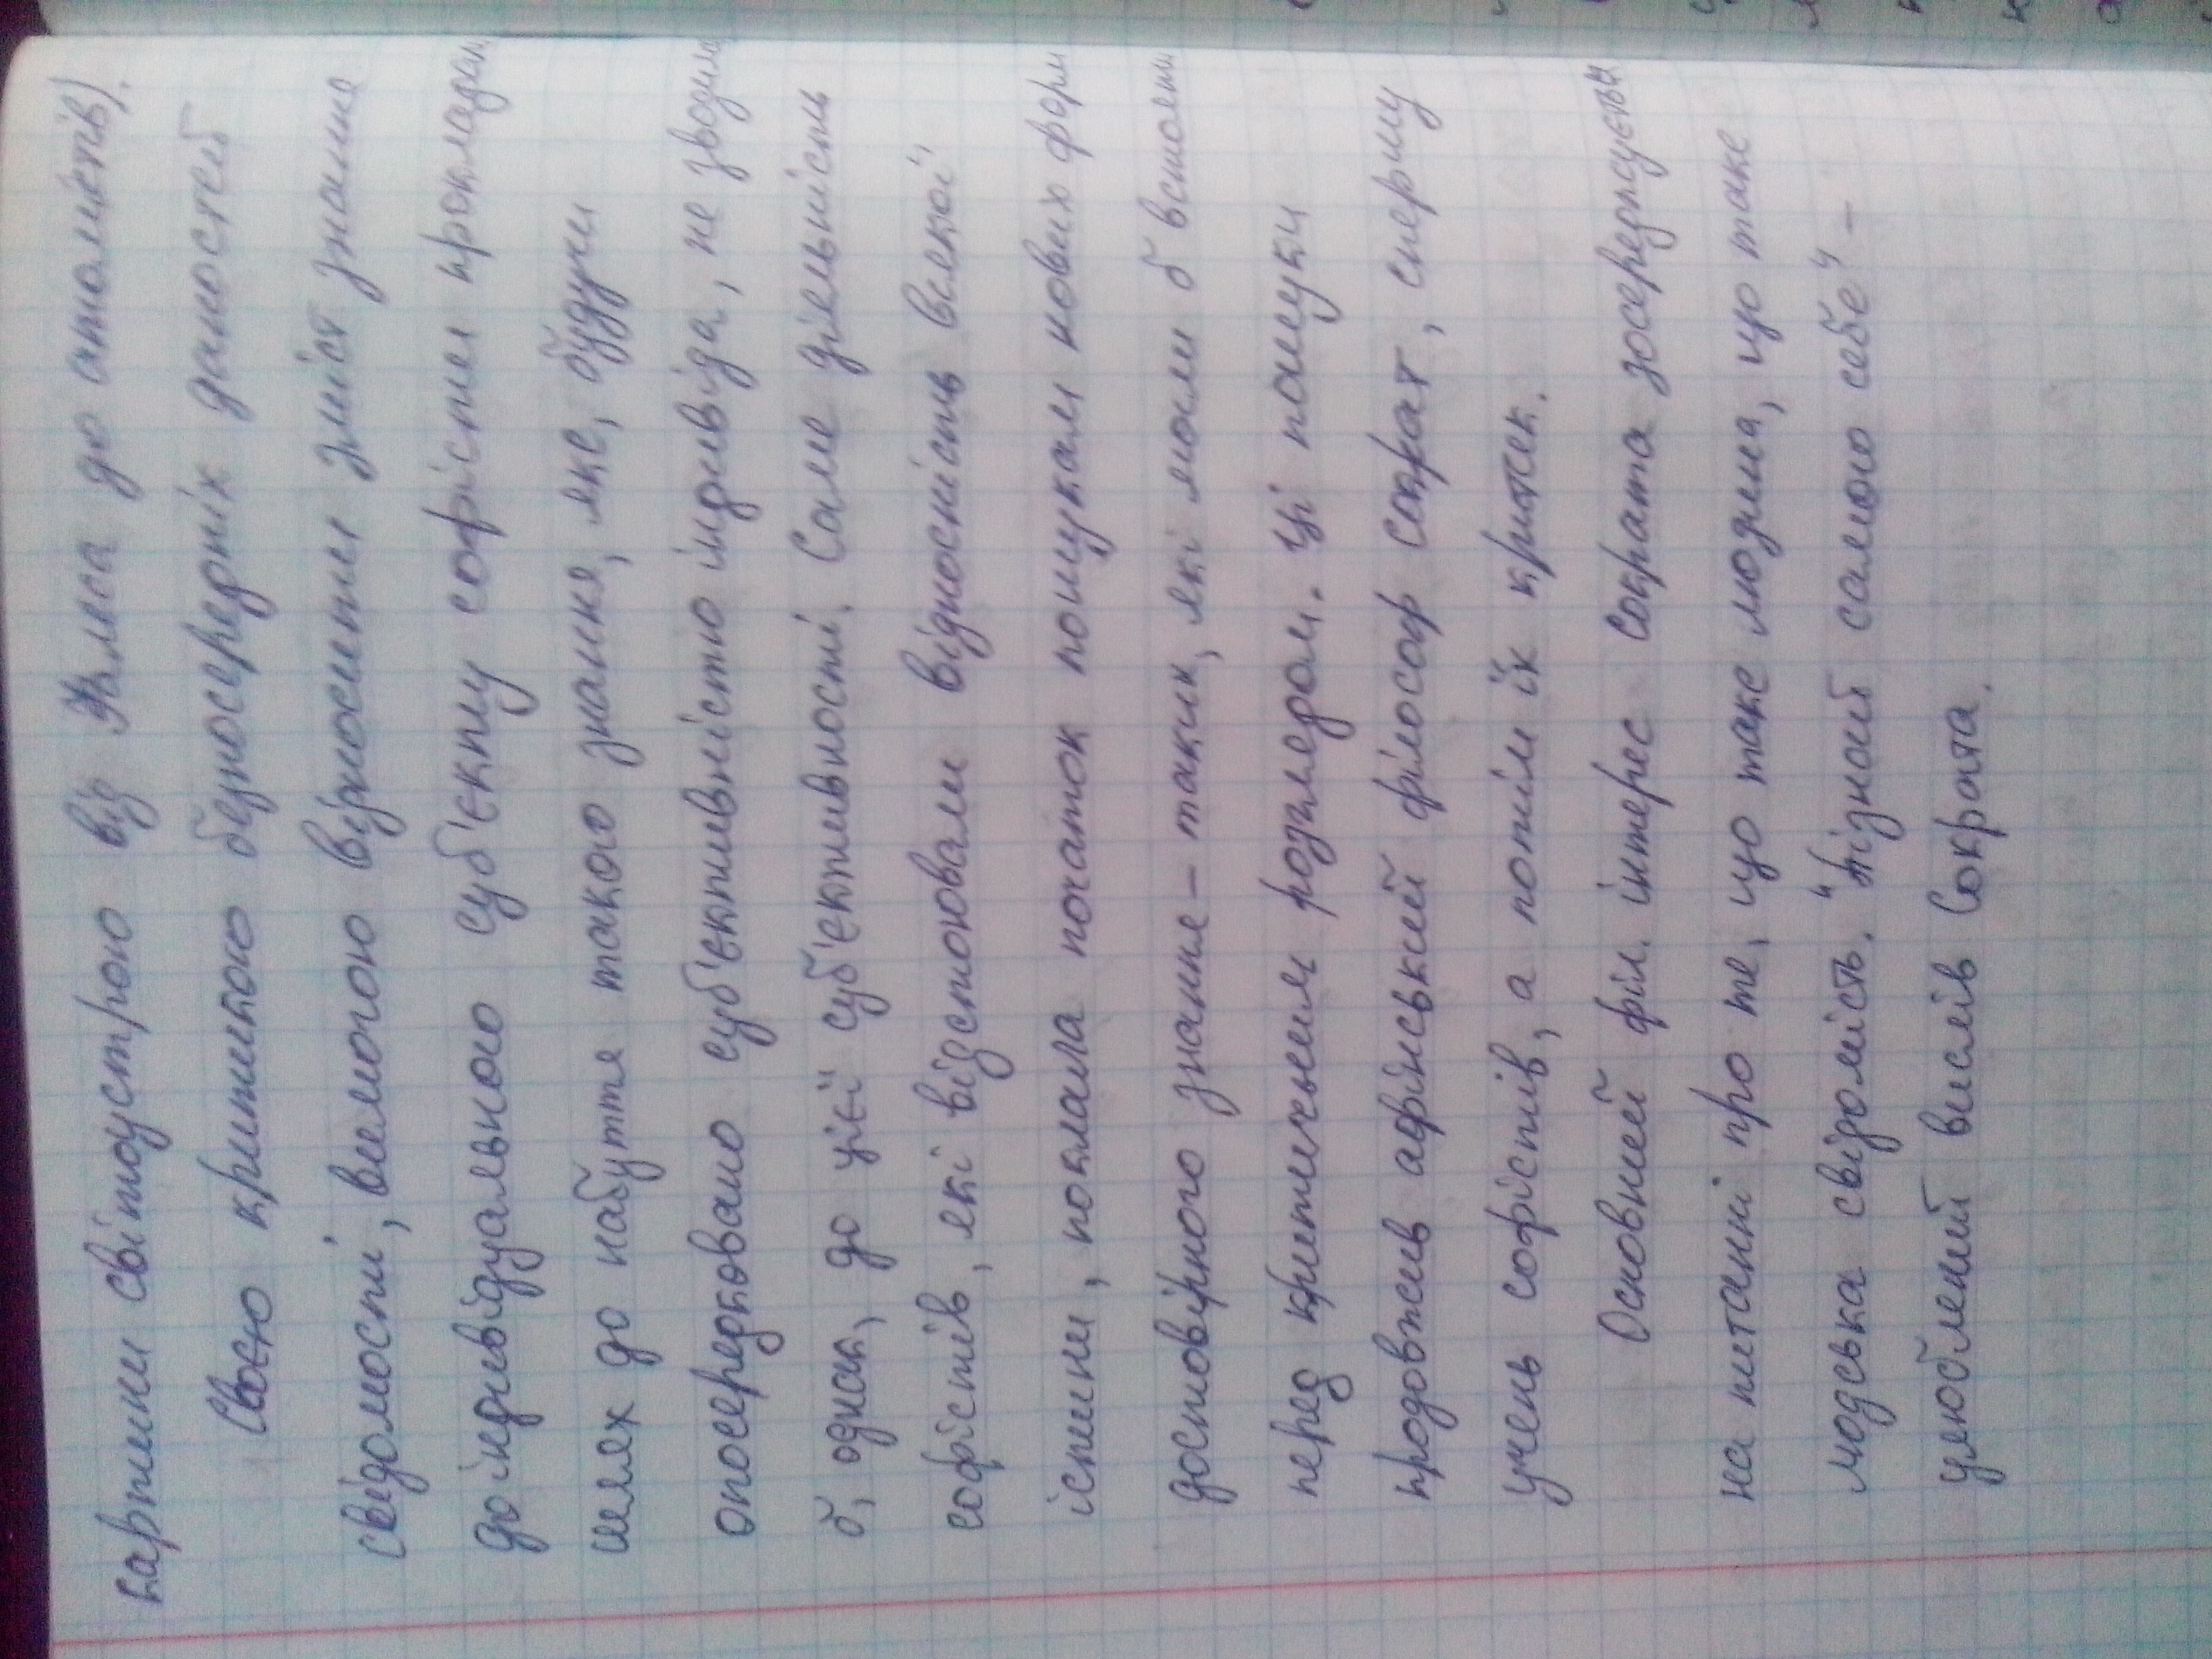 картини світоустрою від Фалеса до атомістів).
Своєю критикою безпосередніх даностей
свідомості, вимогою відносити зміст знання
до індивідуального суб'єкту софісти проклада
шлях до набуття такого знання, яке, будучи
опосередковано суб'єктивністю індивіда, не зводило
б, однак, до цієї суб'єктивності. Саме діяльність
софістів, які відстоювали відносність всякої
істини, поклала початок пошукам нових форм
достовірного знання – таких, які могли б встояти
перед критичним розглядом. Ці пошуки
продовжив афінський філософ Сократ, спершу
учень софістів, а потім їх критик.
Основний філ. інтерес Сократа зосереджується
на питанні про те, що таке людина, що таке
людська свідомість. "Пізнай самого себе" –
улюблений вислів Сократа.